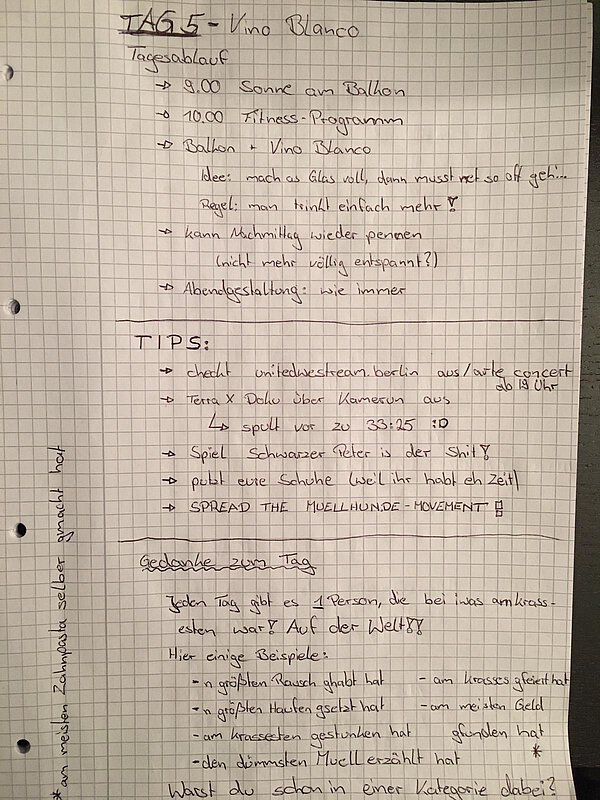 TAG 5 - Vino Blanco
Tagesablauf
→ 9.00 Sonne am Balkon
→ 10.00 Fitness-Programm
→ Balkon + Vino Blanco
Idee: mach as Glas voll, dann musst net so oft geh...
Regel: man trinkt einfach mehr!
→ kann Nachmittag wieder pennen
(nicht mehr völlig entspannt?)
→ Abendgestaltung: wie immer
TIPS:
→ checkt unitedwestream.berlin aus/arte concert
ab 19 Uhr
→ Terra X Doku über Kamerun aus
↳ spult vor zu 33:25 :D
→ Spiel Schwarzer Peter is der Shit!
→ putzt eure Schuhe (weil ihr habt eh Zeit)
→ SPREAD THE MUELLHUNDE-MOVEMENT!
Gedanke zum Tag
Jeden Tag gibt es 1 Person, die bei iwas am krass-
esten war! Auf der Welt!!
Hier einige Beispiele:
- n größten Rausch ghabt hat - am krasses gfeiert hat
- n größten Haufen gsetzt hat - am meisten Geld
- am krassesten gestunken hat gfunden hat
- den dümmsten Muell erzählt hat *
Warst du schon in einer Kategorie dabei?
* am meisten Zahnpasta selber gmacht hat